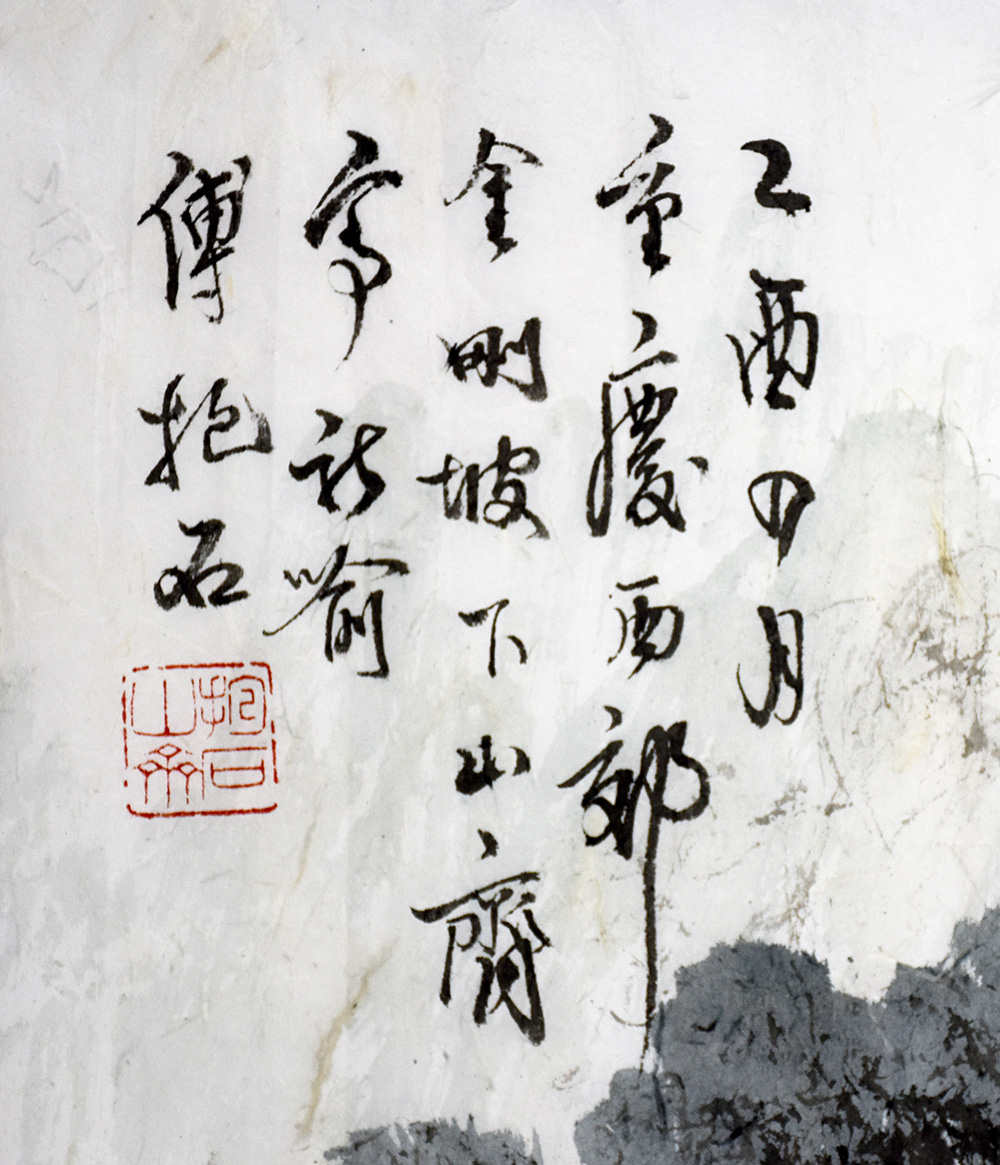 乙酉四月
重慶西郊
金剛坡下山齋
寫新喻
傅抱石
抱石山齋